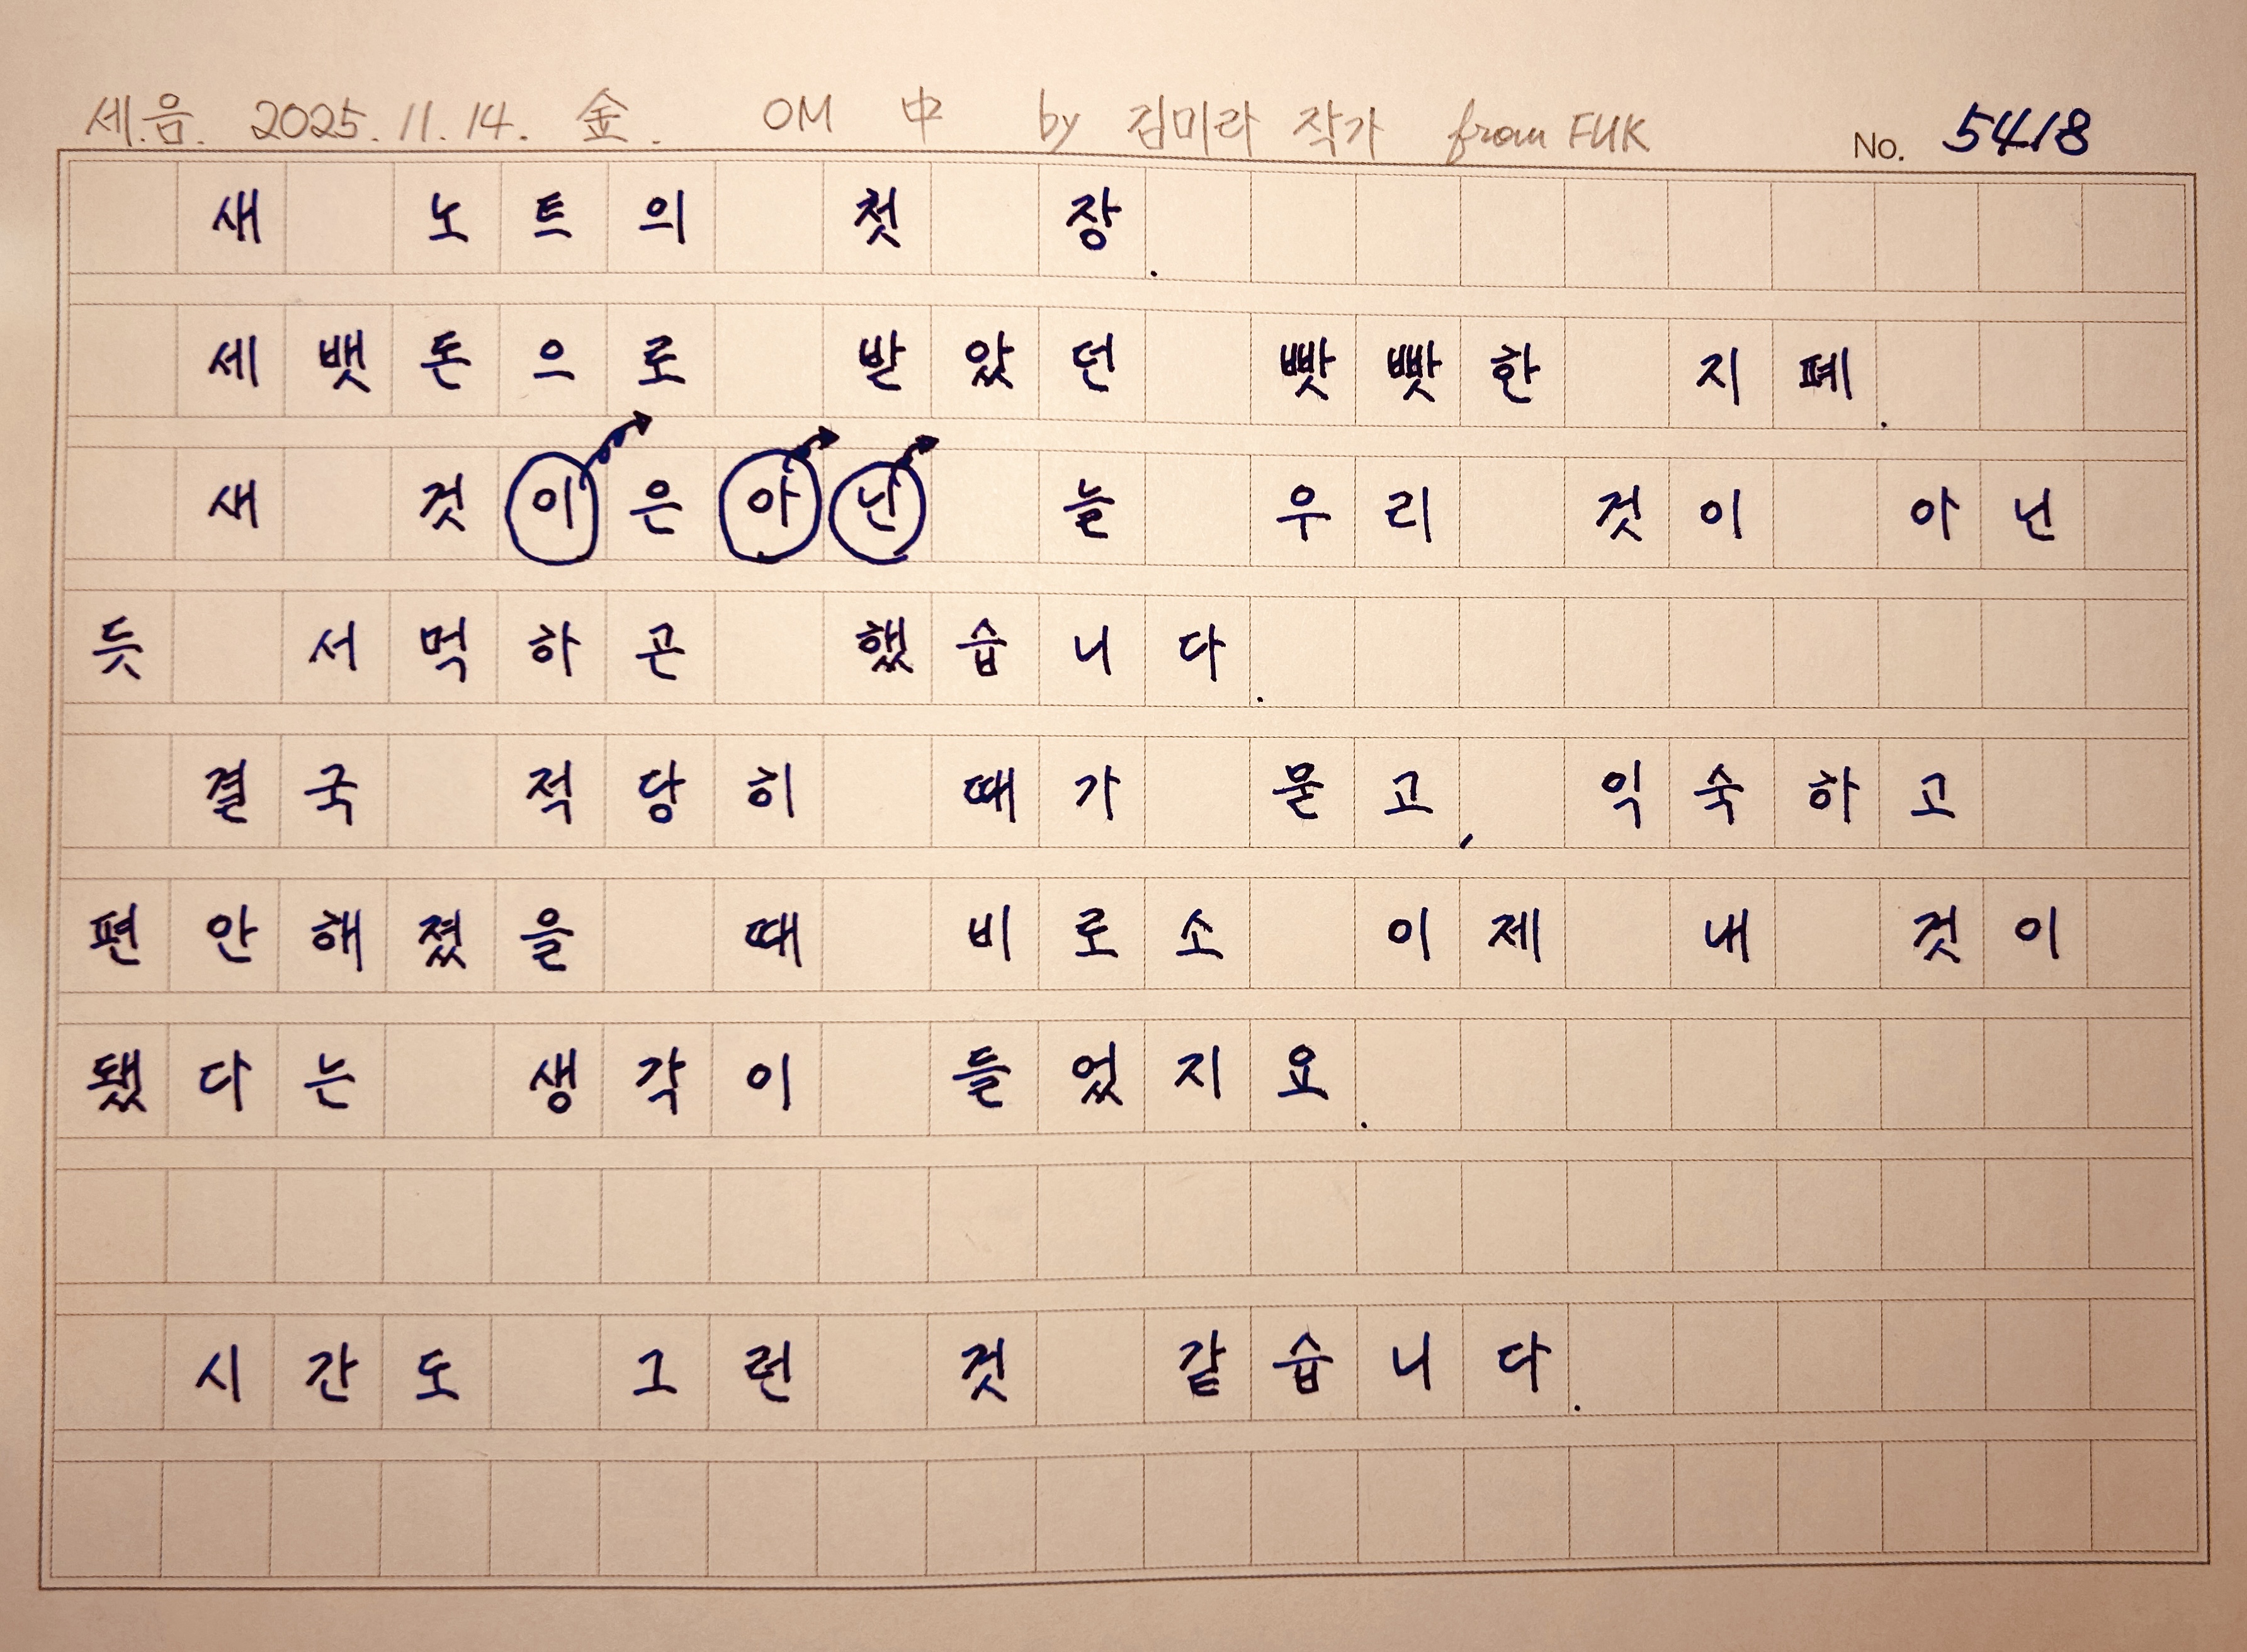 세.음. 2025. 11. 14. 金. OM 中 by 김미라 작가 from FUK No. 5418
새 노트의 첫 장.
세뱃돈으로 받았던 빳빳한 지폐.
새 것이은아닌 늘 우리 것이 아닌
듯 서먹하곤 했습니다.
결국 적당히 때가 묻고, 익숙하고
편안해졌을 때 비로소 이제 내 것이
됐다는 생각이 들었지요.
시간도 그런 것 같습니다.